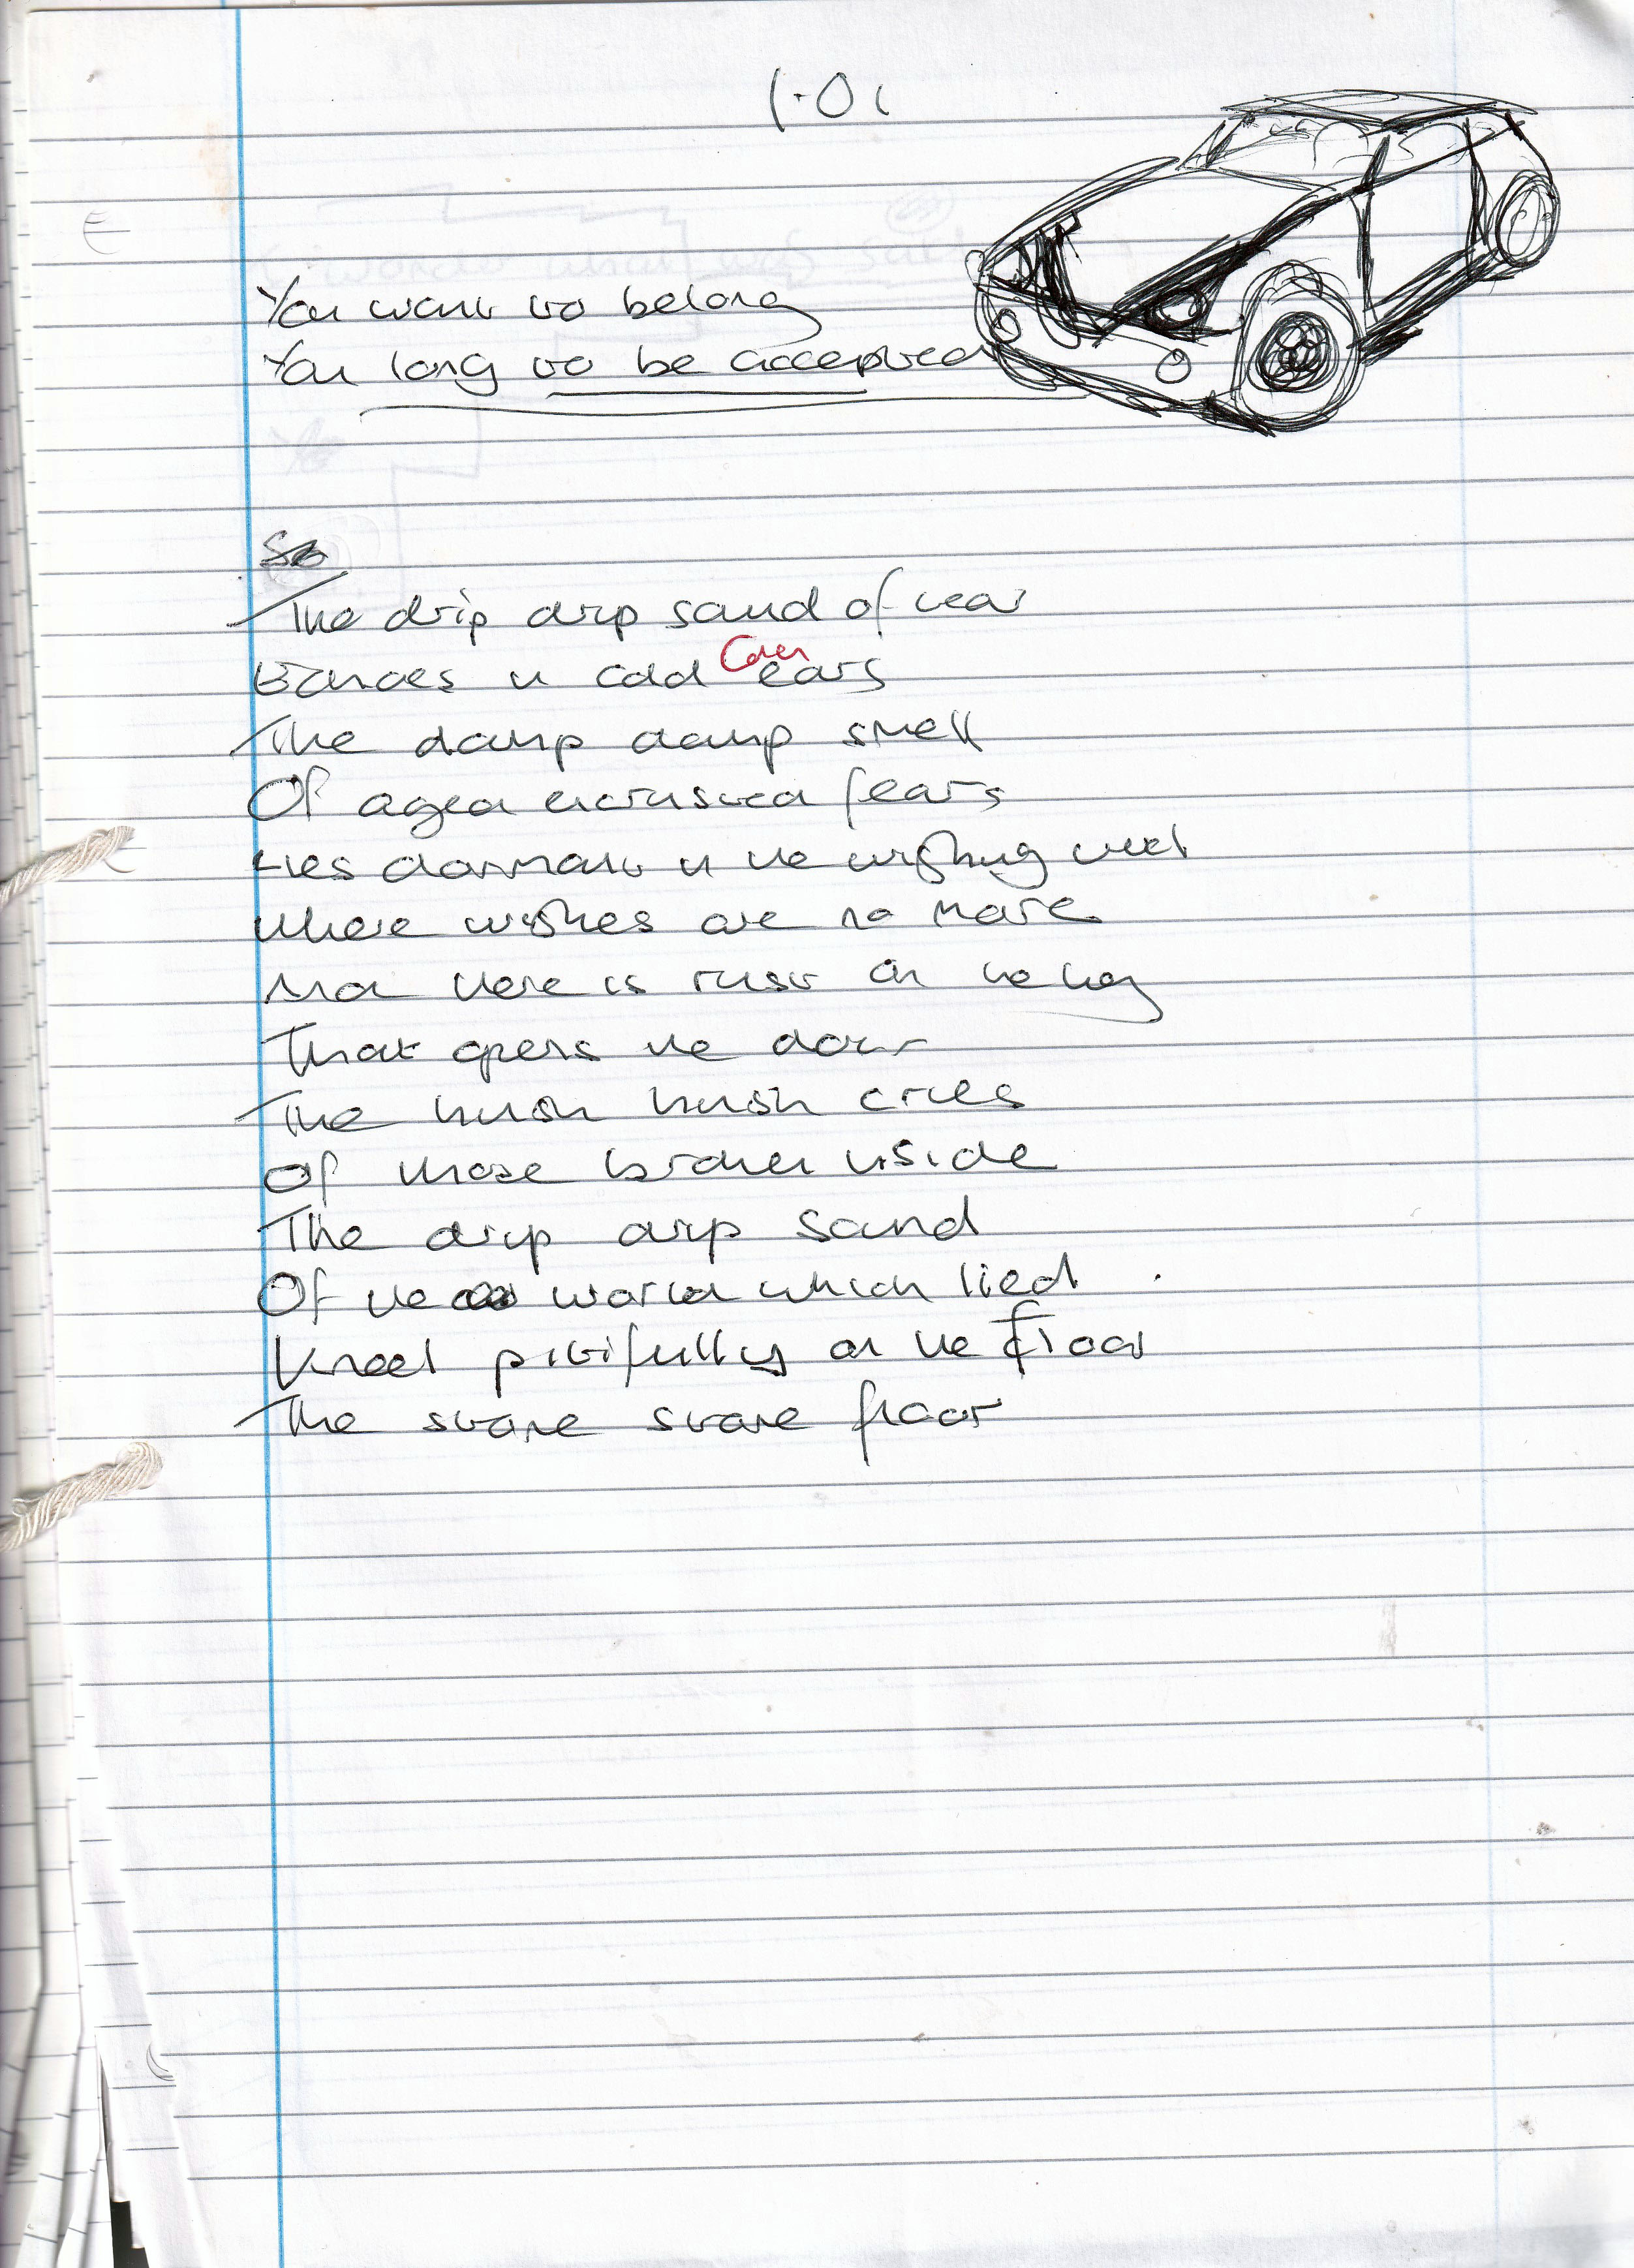 You want to belong
You long to be accepted
So
The drip drip sound of tear
Echoes in cold ears
The damp damp smell
Of aged encrusted fears
Lies dormant in the wishing well
Where wishes are no more
And there is rust on the key
That opens the door
The hush hush cries
Of those broken inside
The drip drip sound
Of the world which lied
Kneel pitifully on the floor
The stone stone floor